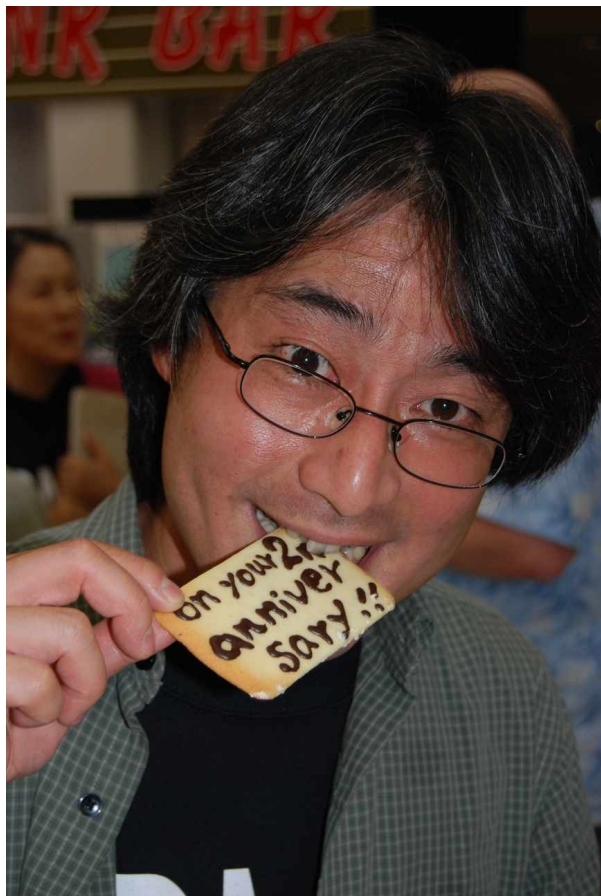 NK BAR
on your 2n
anniver
sary!!